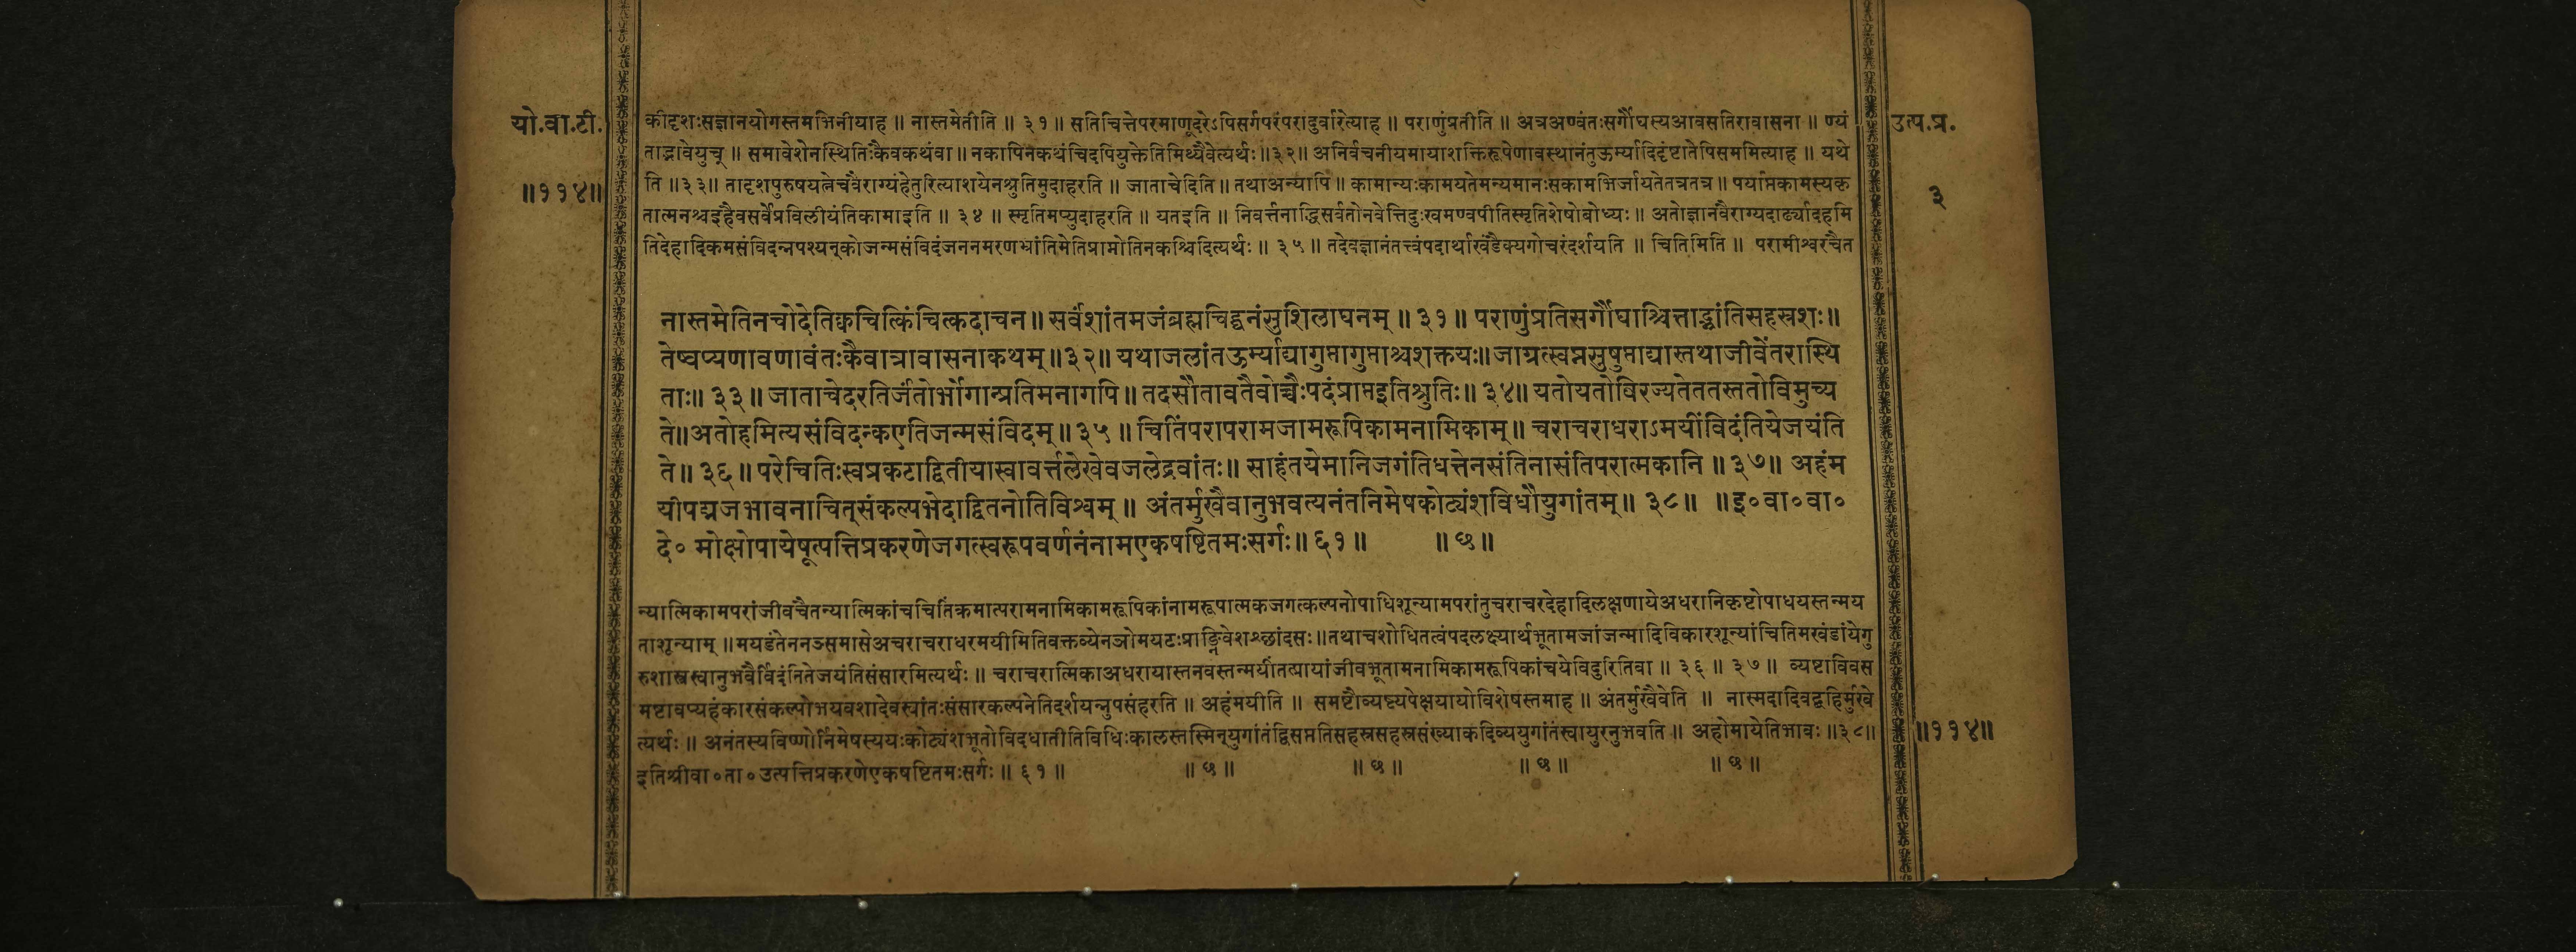 यो.वा.टी.
॥११४॥
उत्प.प्र.
३
कीदृशःसज्ञानयोगस्तमभिनीयाह ॥ नास्तमेतीति ॥ ३१ ॥ सतिचित्तेपरमाणूदरेऽपिसर्गपरंपरादुर्वारेत्याह ॥ पराणुंप्रतीति ॥ अत्रअण्वंतःसर्गौघस्यआवसतिरावासना ॥ ण्यं
ताद्भावेयुच् ॥ समावेशेनस्थितिःकैवकथंवा ॥ नकापिनकथंचिदपियुक्तेतिमिथ्यैवेत्यर्थः ॥३२॥ अनिर्वचनीयमायाशक्तिरूपेणावस्थानंतुऊर्म्यादिदृंष्टातेपिसममित्याह ॥ यथे
ति ॥३३॥ तादृशपुरुषयत्नेचवैराग्यंहेतुरित्याशयेनश्रुतिमुदाहरति ॥ जाताचेदिति ॥ तथाअन्यापि ॥ कामान्यःकामयतेमन्यमानःसकामभिर्जायतेतत्रतत्र ॥ पर्याप्तकामस्यकृ
तात्मनश्चइहैवसर्वेप्रविलीयंतिकामाइति ॥ ३४ ॥ स्मृतिमप्युदाहरति ॥ यतइति ॥ निवर्त्तनाद्धिसर्वतोनवेत्तिदुःखमण्वपीतिस्मृतिशेषोबोध्यः ॥ अतोज्ञानवैराग्यदार्ढ्यादहमि
तिदेहादिकमसंविदन्नपश्यन्कोजन्मसंविदंजननमरणभ्रांतिमेतिप्राप्नोतिनकश्चिदित्यर्थः ॥ ३५ ॥ तदेवज्ञानंतत्त्वंपदार्थाखंडैक्यगोचरंदर्शयति ॥ चितिमिति ॥ परामीश्वरचैत
नास्तमेतिनचोदेतिक्वचित्किंचित्कदाचन ॥ सर्वंशांतमजंब्रह्मचिद्घनंसुशिलाघनम् ॥ ३१ ॥ पराणुंप्रतिसर्गौघाश्चित्ताद्भांतिसहस्रशः ॥
तेष्वप्यणावणावंतःकैवात्रावासनाकथम् ॥३२॥ यथाजलांतऊर्म्याद्यागुप्तागुप्ताश्चशक्तयः ॥ जाग्रत्स्वप्नसुषुप्ताद्यास्तथाजीवेंतरास्थि
ताः ॥ ३३ ॥ जाताचेदरतिर्जंतोर्भोगान्प्रतिमनागपि ॥ तदसौतावतैवोच्चैःपदंप्राप्तइतिश्रुतिः ॥ ३४ ॥ यतोयतोविरज्यतेततस्ततोविमुच्य
ते ॥ अतोहमित्यसंविदन्कएतिजन्मसंविदम् ॥ ३५ ॥ चितिंपरापरामजामरूपिकामनामिकाम् ॥ चराचराधराऽमयींविदंतियेजयंति
ते ॥ ३६ ॥ परेचितिःस्वप्रकटाद्वितीयास्वावर्त्तलेखेवजलेद्रवांतः ॥ साहंतयेमानिजगंतिधत्तेनसंतिनासंतिपरात्मकानि ॥ ३७ ॥ अहंम
यीपद्मजभावनाचित्संकल्पभेदाद्वितनोतिविश्वम् ॥ अंतर्मुखैवानुभवत्यनंतनिमेषकोट्यंशविधौयुगांतम् ॥ ३८ ॥ ॥ इ०वा०वा०
दे० मोक्षोपायेषूत्पत्तिप्रकरणेजगत्स्वरूपवर्णनंनामएकषष्टितमःसर्गः ॥ ६१ ॥ ॥ छ ॥
न्यात्मिकामपरांजीवचैतन्यात्मिकांचचितिंक्रमात्परामनामिकामरूपिकांनामरूपात्मकजगत्कल्पनोपाधिशून्यामपरांतुचराचरदेहादिलक्षणायेअधरानिकृष्टोपाधयस्तन्मय
ताशून्याम् ॥ मयडंतेननञ्समासेअचराचराधरमयीमितिवक्तव्येनञोमयटःप्राङ्निवेशश्छांदसः ॥ तथाचशोधितत्वंपदलक्ष्यार्थभूतामजांजन्मादिविकारशून्यांचितिमखंडांयेगु
रुशास्त्रस्वानुभवैर्विदंतितेजयंतिसंसारमित्यर्थः ॥ चराचरात्मिकाअधरायास्तनवस्तन्मयींतत्प्रायांजीवभूतामनामिकामरूपिकांचयेविदुरितिवा ॥ ३६ ॥ ३७ ॥ व्यष्टाविवस
मष्टावप्यहंकारसंकल्पोभयवशादेवस्वांतःसंसारकल्पनेतिदर्शयन्नुपसंहरति ॥ अहंमयीति ॥ समष्टौव्यष्ट्यपेक्षयायोविशेषस्तमाह ॥ अंतर्मुखैवेति ॥ नास्मदादिवद्बहिर्मुखे
त्यर्थः ॥ अनंतस्यविष्णोर्निमेषस्ययःकोट्यंशभूतोविदधातीतिविधिःकालस्तस्मिन्युगांतंद्विसप्ततिसहस्रसहस्रसंख्याकदिव्ययुगांतंस्वायुरनुभवति ॥ अहोमायेतिभावः ॥३८॥
इतिश्रीवा०ता०उत्पत्तिप्रकरणेएकषष्टितमःसर्गः ॥ ६१ ॥ ॥ छ ॥ ॥ छ ॥ ॥ छ ॥ ॥ छ ॥
॥११४॥